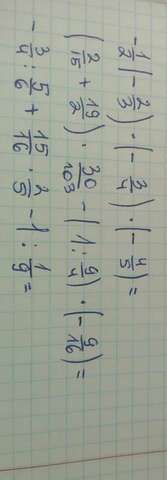 -1/2(-2/3)·(-3/4)·(-4/5)=
(2/15+19/2)·30/103-(1:9/4)·(-9/16)=
-3/4:5/6+15/16·2/5-1:1/9=